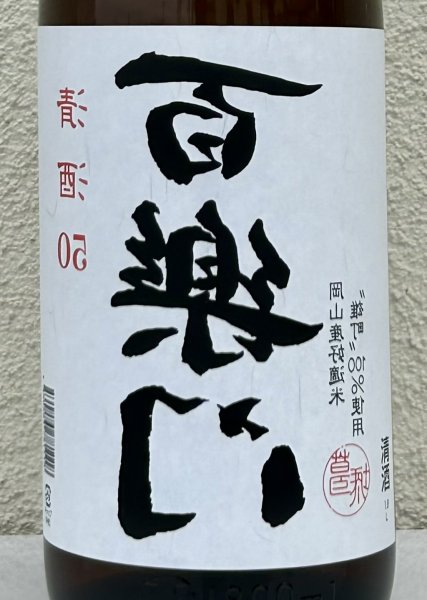 清酒 50
百樂門
岡山産好適米
〝雄町〟100%使用
清酒